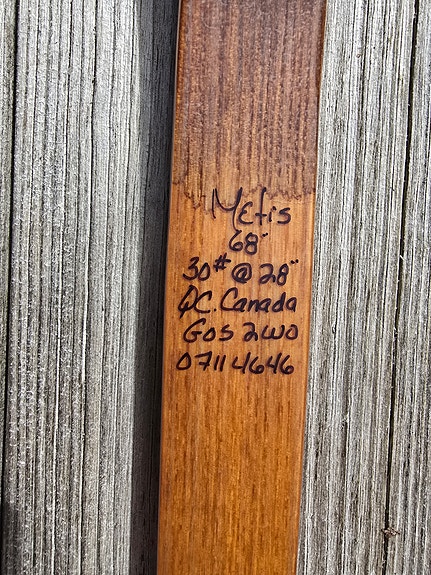 Metis
68"
30# @ 28"
QC. Canada
G0S 2W0
07114646